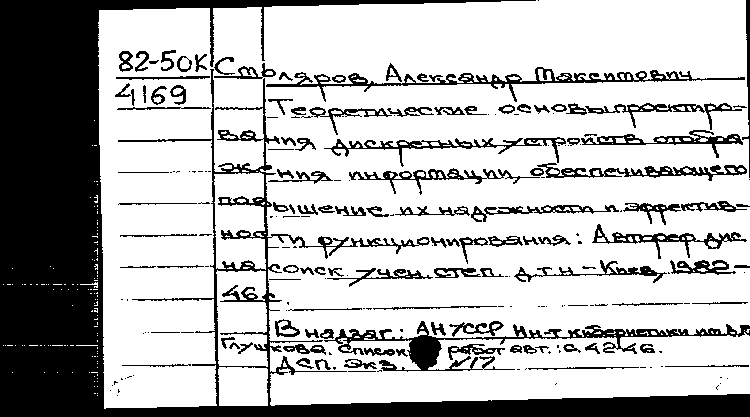 82-50К Столяров, Александр Максимович
4169
Теоретические основы проектиро-
вания дискретных устройств отобра-
жения информации, обеспечивающего
повышение их надежности и эффектив-
ности функционирования: Автореф дис.
на соиск учен. степ д.т.н - Киев, 1982 -
46 с.
В надзаг: АН УССР, Ин-т кибернетики им В.М
Глушкова. Список работ авт.: с. 42-46.
ДСП. Экз. N17